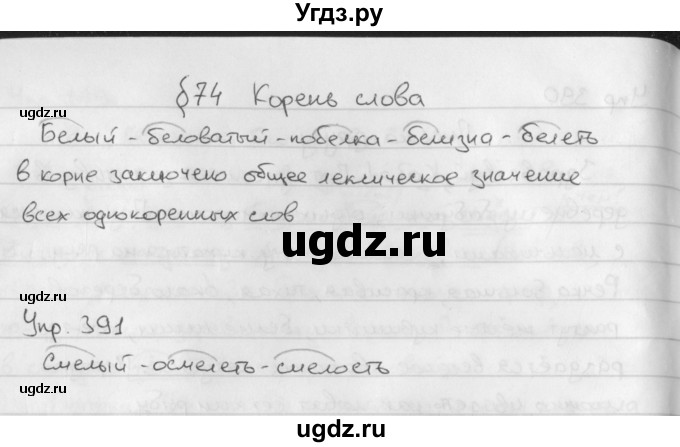 Угдз.ру
§74 Корень слова
ugdz.ru
Белый - беловатый - побелка - белизна - белеть
в корне заключено общее лексическое значение
ugdz.ru
всех однокоренных слов
ugdz.ru
ugdz.ru
Упр. 391
Смелый - осмелеть - смелость
ugdz.ru
ugdz.ru
Угдз.ру